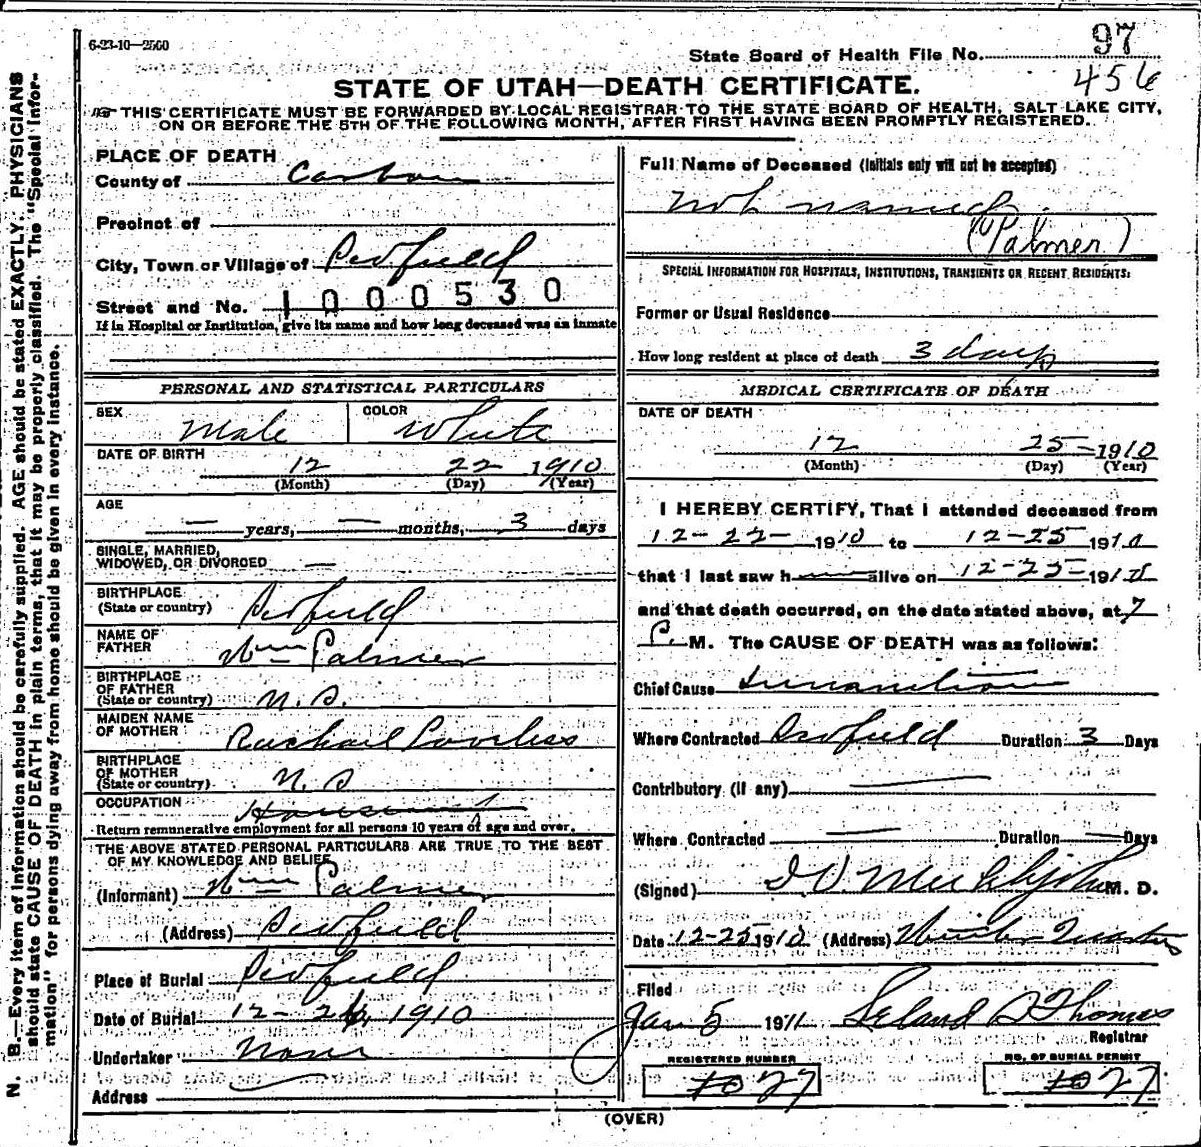 6-23-10—2500
State Board of Health File No. 97
456
STATE OF UTAH—DEATH CERTIFICATE.
☞ THIS CERTIFICATE MUST BE FORWARDED BY LOCAL REGISTRAR TO THE STATE BOARD OF HEALTH, SALT LAKE CITY,
ON OR BEFORE THE 5TH OF THE FOLLOWING MONTH, AFTER FIRST HAVING BEEN PROMPTLY REGISTERED.
N. B.—Every item of information should be carefully supplied. AGE should be stated EXACTLY. PHYSICIANS
should state CAUSE OF DEATH in plain terms, that it may be properly classified. The "Special Infor-
mation" for persons dying away from home should be given in every instance.
PLACE OF DEATH
County of Carbon
Precinct of
City, Town or Village of
Street and No. 1000530
If in Hospital or Institution, give its name and how long deceased was an inmate
PERSONAL AND STATISTICAL PARTICULARS
SEX Male COLOR White
DATE OF BIRTH
12 22 1910
(Month) (Day) (Year)
AGE
— years, — months, 3 days
SINGLE, MARRIED,
WIDOWED, OR DIVORCED —
BIRTHPLACE
(State or country)
NAME OF
FATHER Wm Palmer
BIRTHPLACE
OF FATHER
(State or country) N. S.
MAIDEN NAME
OF MOTHER Rachael
BIRTHPLACE
OF MOTHER
(State or country) N. S
OCCUPATION
Return remunerative employment for all persons 10 years of age and over.
THE ABOVE STATED PERSONAL PARTICULARS ARE TRUE TO THE BEST
OF MY KNOWLEDGE AND BELIEF
(Informant) Wm Palmer
(Address)
Place of Burial
Date of Burial 12- 26 1910
Undertaker None
Address
Full Name of Deceased (Initials only will not be accepted)
Not named
(Palmer)
SPECIAL INFORMATION FOR HOSPITALS, INSTITUTIONS, TRANSIENTS OR RECENT RESIDENTS:
Former or Usual Residence
How long resident at place of death 3 days
MEDICAL CERTIFICATE OF DEATH
DATE OF DEATH
12 25—1910
(Month) (Day) (Year)
I HEREBY CERTIFY, That I attended deceased from
12- 22- 1910 to 12-25 1910
that I last saw h alive on 12-25-1910
and that death occurred, on the date stated above, at 7
P. M. The CAUSE OF DEATH was as follows:
Chief Cause Inanition
Where Contracted Duration 3 Days
Contributory (if any) —
Where Contracted — Duration — Days
(Signed) M. D.
Date 12-25 1910 (Address) Winter Quarters
Filed
Jan 5 1911 Leland S Thomas
Registrar
REGISTERED NUMBER
1027
NO. OF BURIAL PERMIT
1027
(OVER)